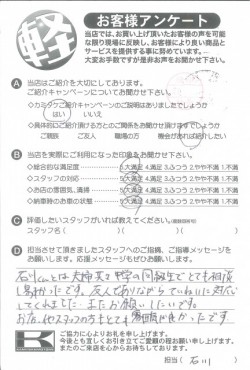 軽
お客様アンケート
当店では、お買い上げ頂いたお客様の声を可能
な限り現場に反映し、お客様により良い商品と
サービスを提供する事に努めています。
大変お手数ですが是非お声をお聞かせ下さい。
A 当店はご紹介を大切にしております。
ご紹介キャンペーンについてお聞かせ下さい。
ご紹介キャンペーンのご説明はありましたでしょうか
はい いいえ
具体的にご紹介頂ける方とのご関係をお聞かせ頂けますでしょうか
ご親族 ご友人 職場の方 機会があれば紹介したい
B 当店を実際にご利用になった印象をお聞かせ下さい。
総合的な満足度 5.大満足 4.満足 3.ふつう 2.やや不満 1.不満
スタッフの対応 5.大満足 4.満足 3.ふつう 2.やや不満 1.不満
お店の雰囲気、清掃 5.大満足 4.満足 3.ふつう 2.やや不満 1.不満
納車時のお車の状態 5.大満足 4.満足 3.ふつう 2.やや不満 1.不満
C 評価したいスタッフがいれば教えてください。
スタッフ名( )( )( )
D 担当させて頂きましたスタッフへのご指摘、ご指導メッセージを
お願いします。応援メッセージもぜひお願いします。
石川くんとは
とても相談
し易かったです。友人でありながらていねいに対応
してくれました。またお願いしたいです。
お店
スタッフの方もとても雰囲気が良かったです
K
ご協力に心よりお礼を申し上げます。
今後とも宜しくお引き立てご愛顧の程お願い申し上げます。
またのご来店を心からお待ちしております。
担当( 石川 )